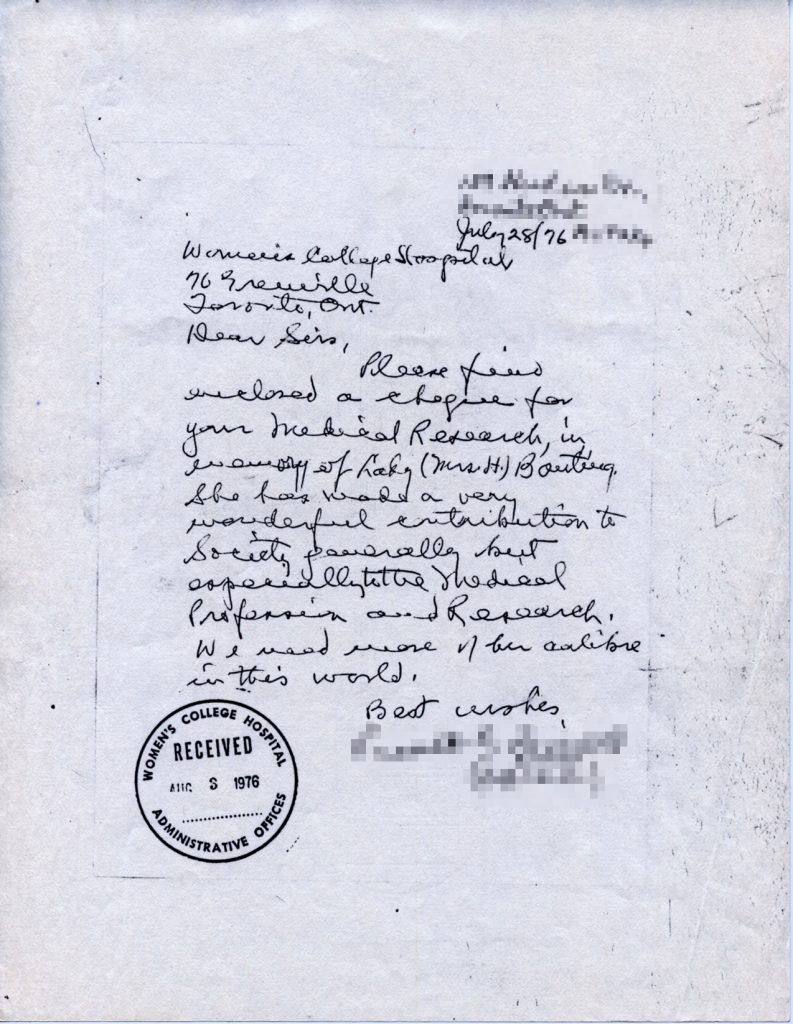 July 28/76
Women's College Hospital
76 Grenville
Toronto, Ont.
Dear Sirs,
Please find
enclosed a cheque for
your Medical Research, in
memory of Lady (Mrs. H.) Banting.
She has made a very
wonderful contribution to
Society generally but
especially to the Medical
Profession and Research.
We need more of her calibre
in this world.
Best wishes,
WOMEN'S COLLEGE HOSPITAL
RECEIVED
AUG 3 1976
ADMINISTRATIVE OFFICES